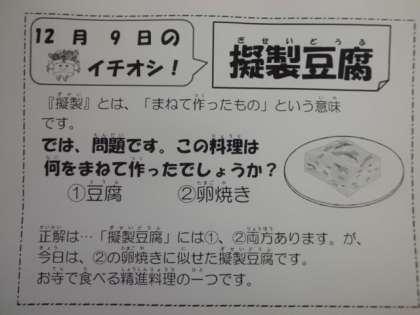 12月9日の
イチオシ！
擬製豆腐
『擬製』とは、「まねて作ったもの」という意味
です。
では、問題です。この料理は
何をまねて作ったでしょうか？
①豆腐 ②卵焼き
正解は…「擬製豆腐」には①、②両方あります。が、
今日は、②の卵焼きに似せた擬製豆腐です。
お寺で食べる精進料理の一つです。